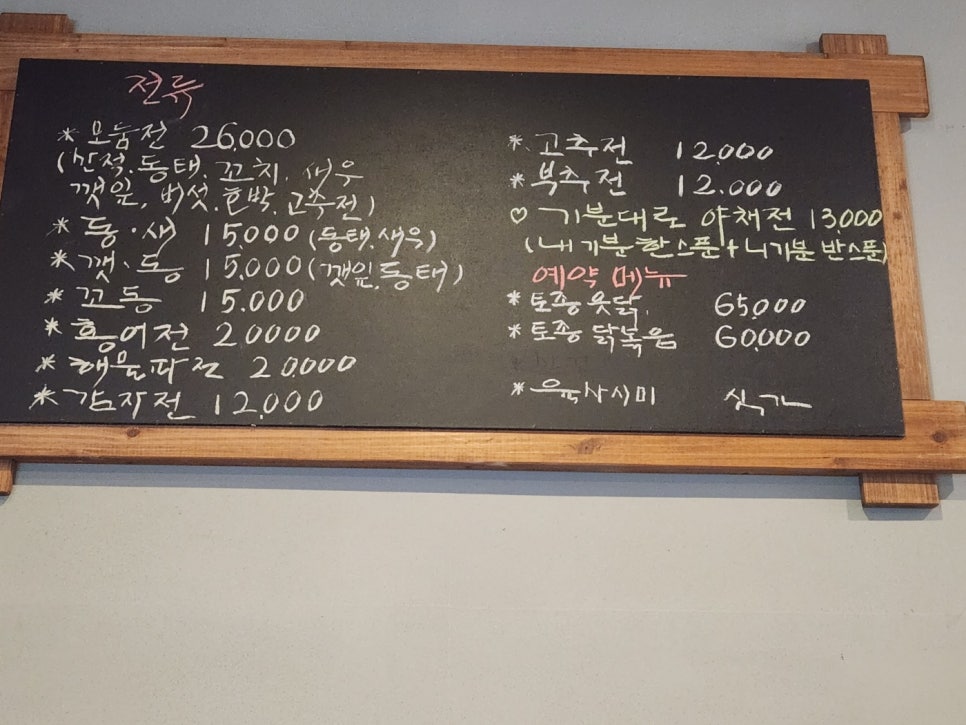 전류
* 모둠전 26,000
(산적.동태.꼬치.새우
깻잎, 버섯.호박.고추전)
* 동·새 15,000 (동태.새우)
* 깻·동 15,000 (깻잎.동태)
* 꼬동 15.000
* 홍어전 20000
* 해물파전 20,000
* 감자전 12,000
* 고추전 12.000
* 부추전 12.000
♡ 기분대로 야채전 13,000
(내 기분 한스푼+니기분 반스푼)
예약 메뉴
* 토종 옻닭. 65,000
* 토종 닭볶음 60,000
* 육사시미 싯가